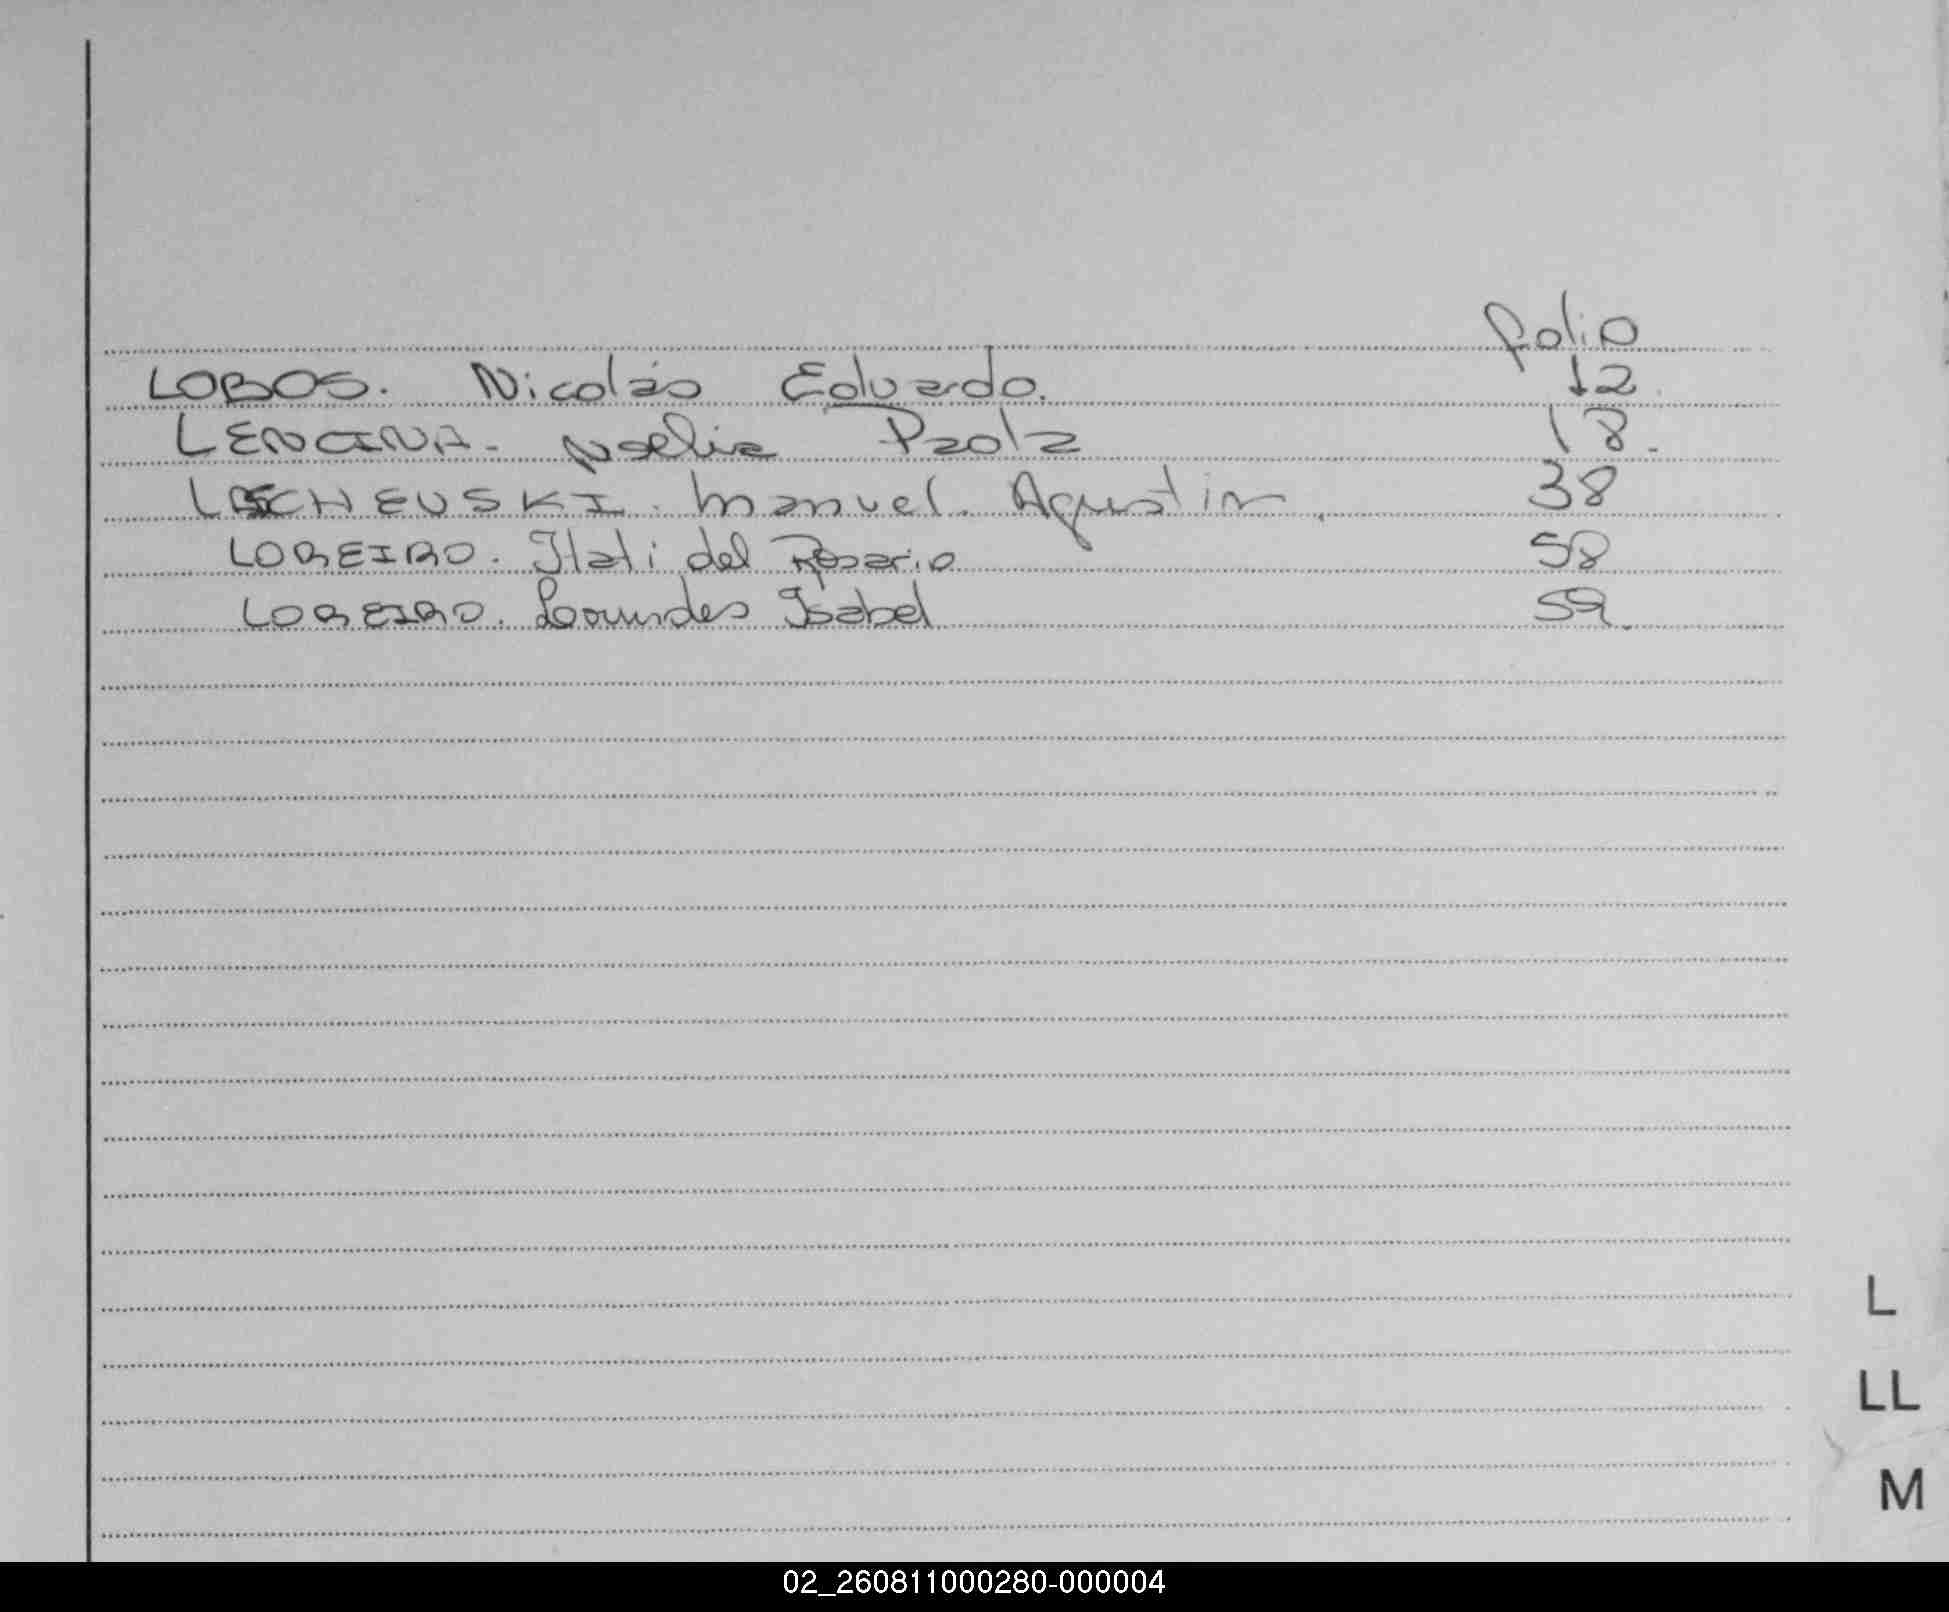 folio
LOBOS. Nicolás Eduardo. 12.
LENCINA. Noelia Paola 18.
LESCHEUSKI. Manuel. Agustin. 38
LOREIRO. Itati del Rosario 58
LOREIRO. Lourdes Isabel 59.
L
LL
M
02_260811000280-000004